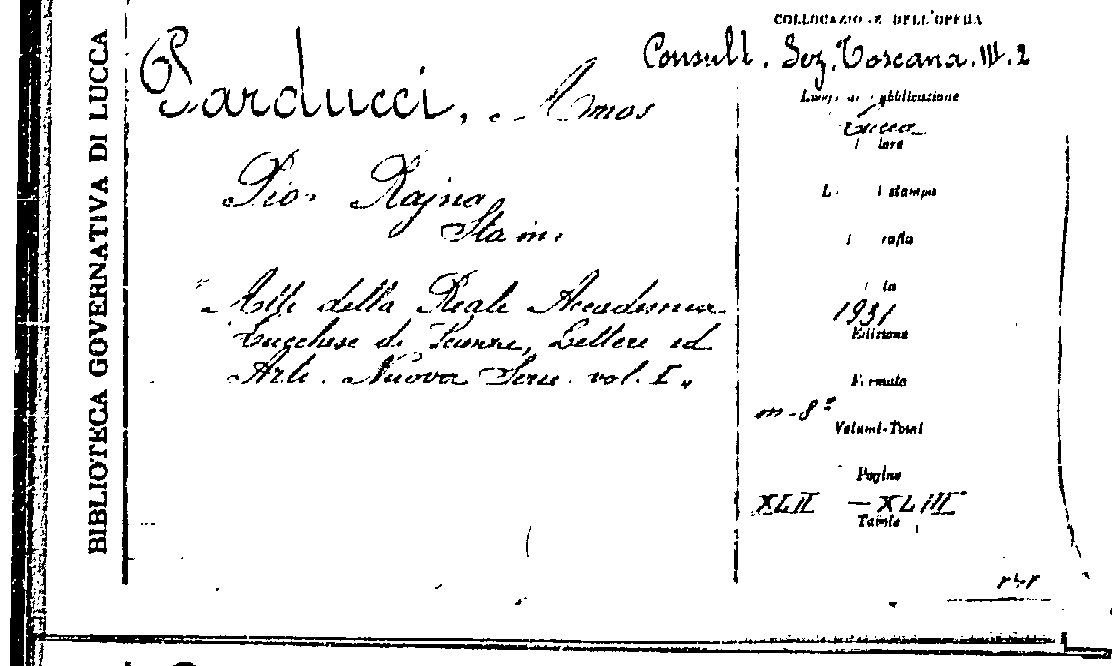 BIBLIOTECA GOVERNATIVA DI LUCCA
Parducci, Amos
Pio Rajna
Atti della Reale Accademia
Lucchese di Scienze, Lettere ed
Arti. Nuova Serie. vol. I.
COLLOCAZIONE DELL'OPERA
Consult. Sez. Toscana. III. 2
Luogo di pubblicazione
Lucca
1931
Edizione
Formato
in-8º
Volumi-Tomi
Pagine
XLII — XLIII
Tavole